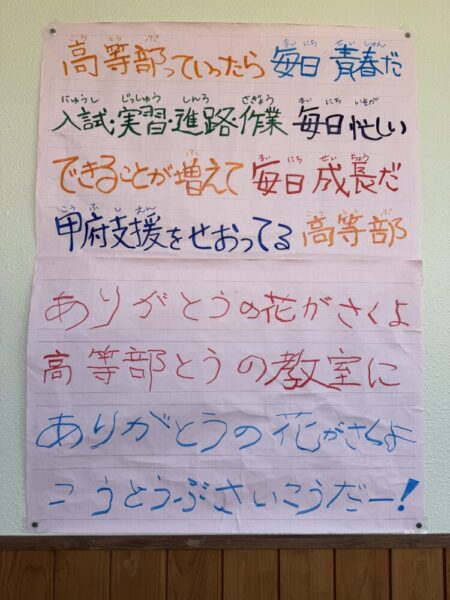 高等部っていったら 毎日 青春だ
入試・実習・進路・作業 毎日 忙しい
できることが増えて 毎日 成長だ
甲府支援をせおってる 高等部
ありがとうの花がさくよ
高等部とうの教室に
ありがとうの花がさくよ
こうとうぶさいこうだー!